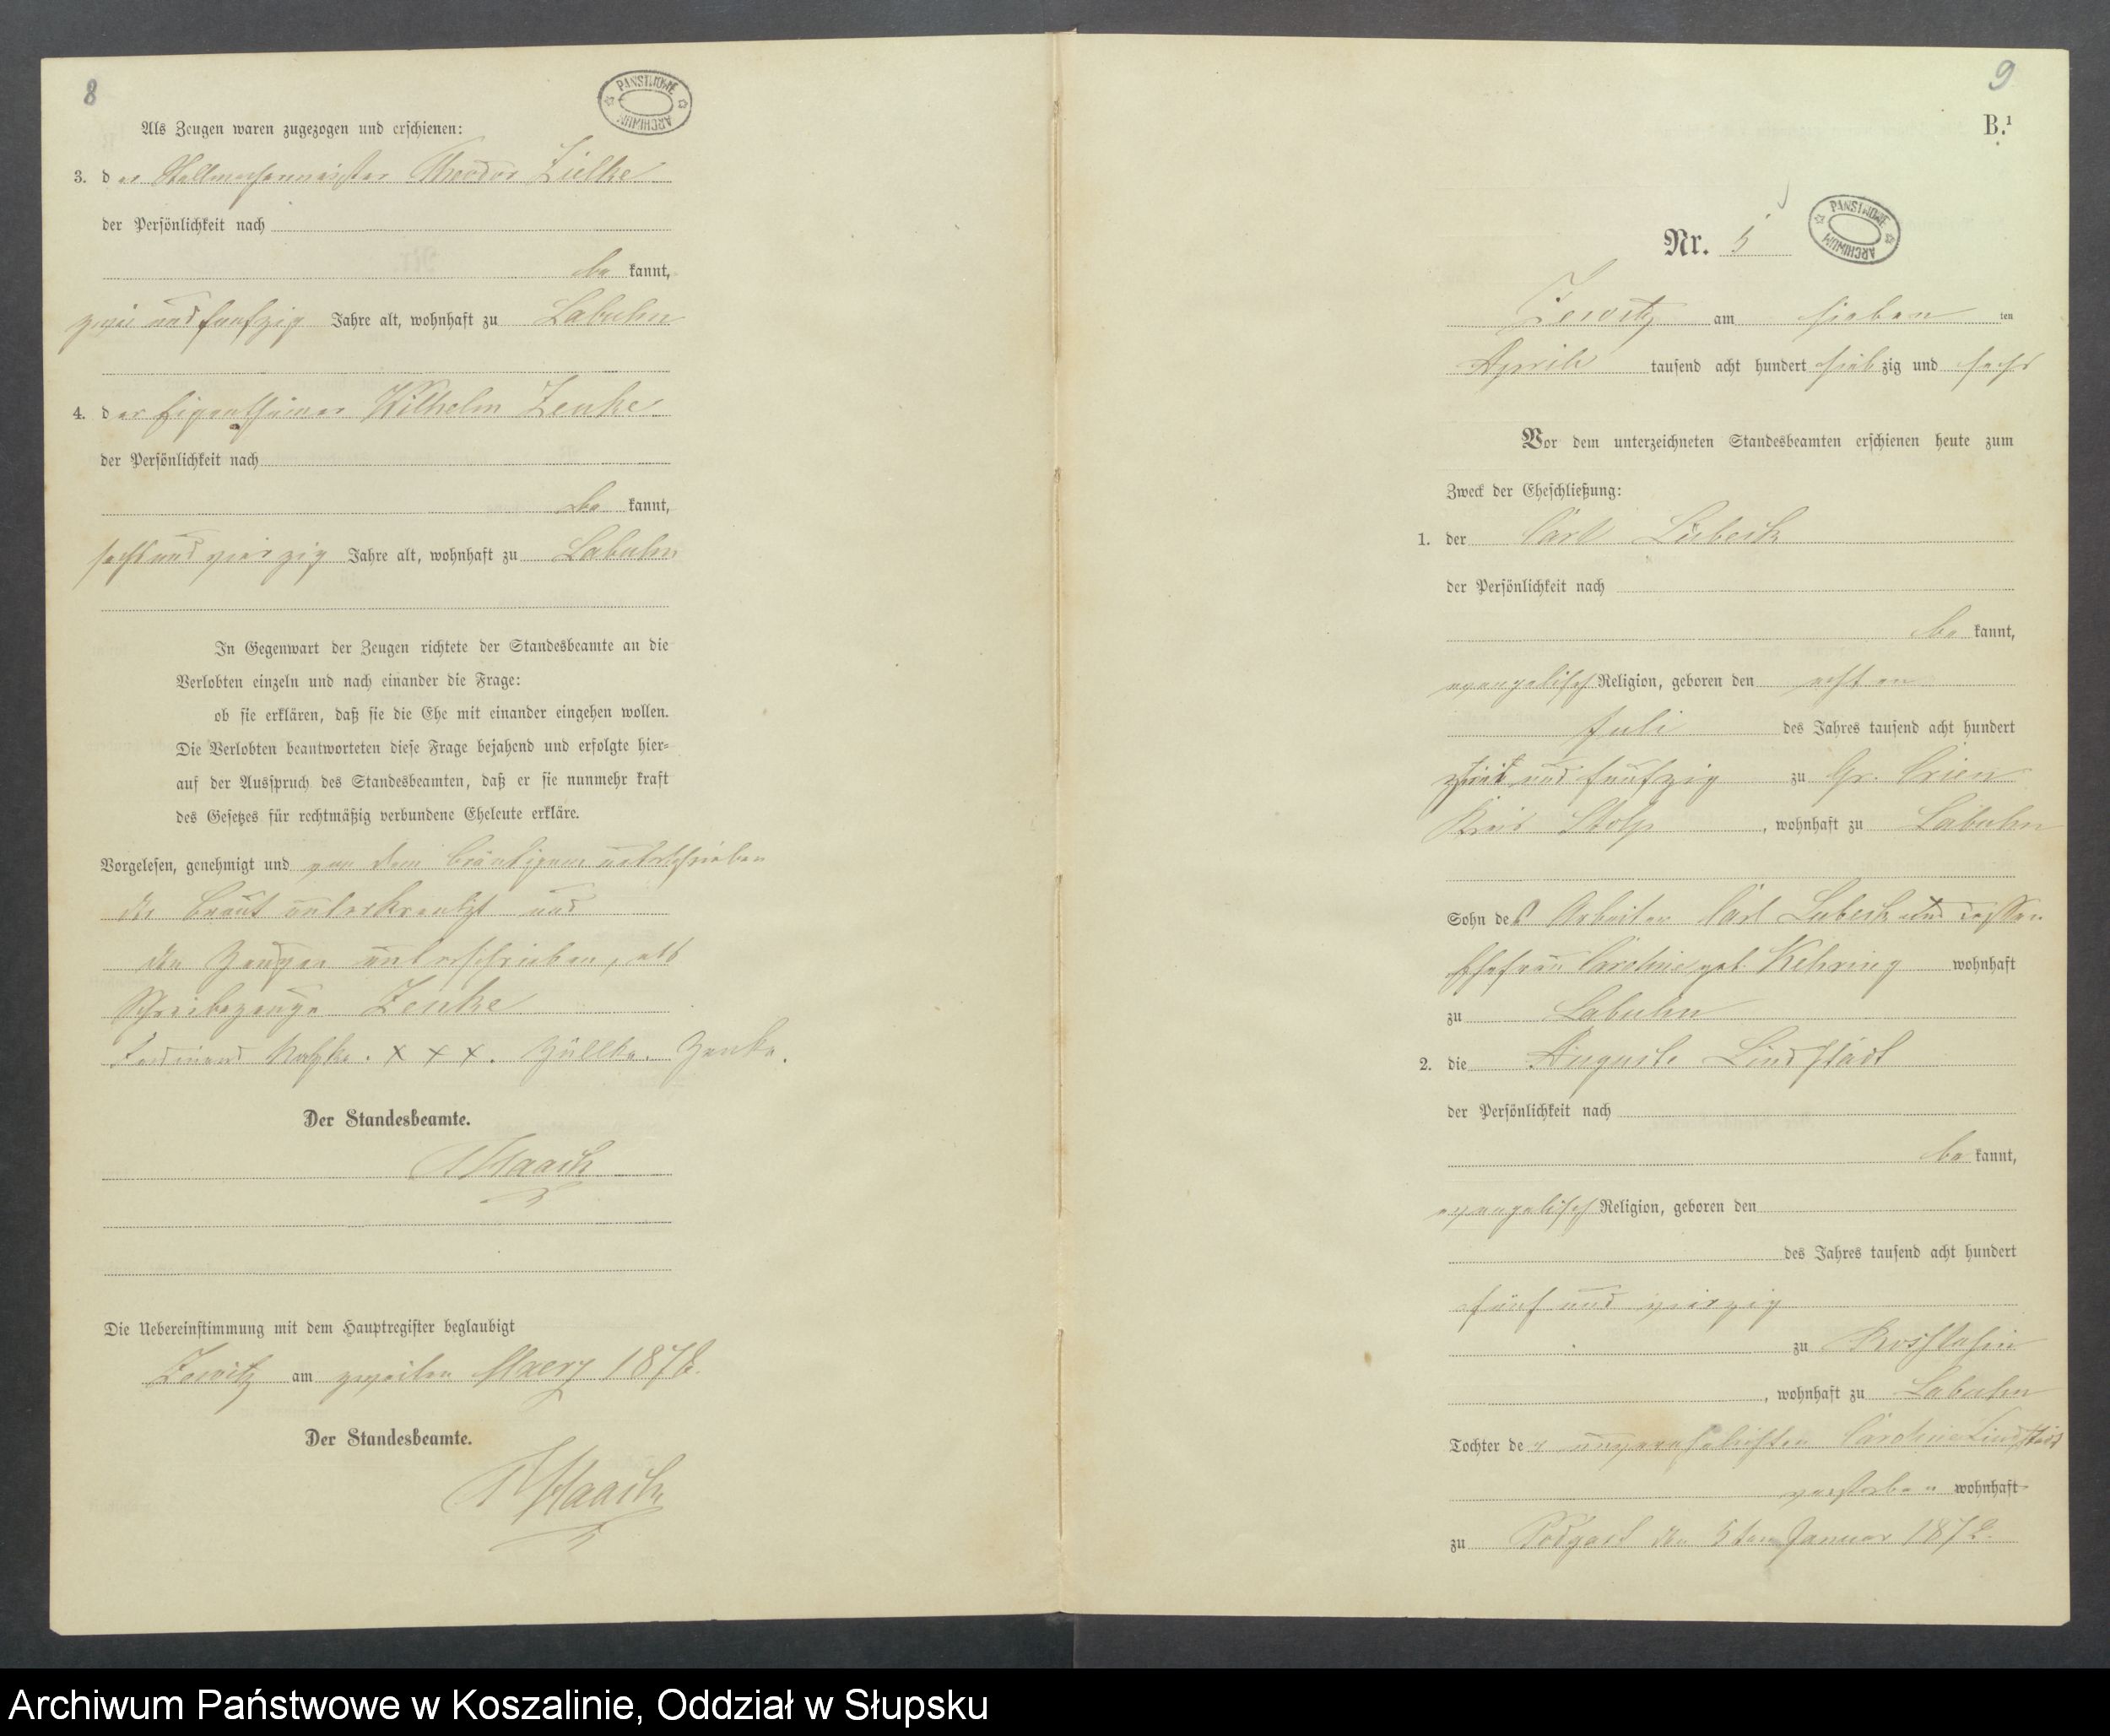 8
PANSTWOWE ARCHIWUM
Als Zeugen waren zugezogen und erschienen:
3. der Stellmachermeister Theodor Zielke
der Persönlichkeit nach
be kannt,
zwei und funfzig Jahre alt, wohnhaft zu Labuhn
4. der Eigenthümer Wilhelm Zenke
der Persönlichkeit nach
be kannt,
sechs und vierzig Jahre alt, wohnhaft zu Labuhn
In Gegenwart der Zeugen richtete der Standesbeamte an die
Verlobten einzeln und nach einander die Frage:
ob sie erklären, daß sie die Ehe mit einander eingehen wollen.
Die Verlobten beantworteten diese Frage bejahend und erfolgte hier=
auf der Ausspruch des Standesbeamten, daß er sie nunmehr kraft
des Gesetzes für rechtmäßig verbundene Eheleute erkläre.
Vorgelesen, genehmigt und von dem Bräutigam unterschrieben
der Braut unterkreutzt und
den Zeugen unterschrieben, als
Schreibezeuge Zenke
Ferdinand x x x. Zenke.
Der Standesbeamte.
Haack
Die Uebereinstimmung mit dem Hauptregister beglaubigt
Zewitz am zweiten Maerz 1876.
Der Standesbeamte.
Haack
9
B.¹
PANSTWOWE ARCHIWUM
Nr. 5
Zewitz am sieben ten
April tausend acht hundert siebzig und sechs
Vor dem unterzeichneten Standesbeamten erschienen heute zum
Zweck der Eheschließung:
1. der Carl Lübeck
der Persönlichkeit nach
be kannt,
evangelisch Religion, geboren den achten
Juli des Jahres tausend acht hundert
und funfzig zu Gr. Crien
Kreis Stolp, wohnhaft zu Labuhn
Sohn des Arbeiter Carl Lübeck und dessen
Ehefrau Caroline geb Kehring wohnhaft
zu Labuhn
2. die Auguste Lindstädt
der Persönlichkeit nach
be kannt,
evangelisch Religion, geboren den
des Jahres tausend acht hundert
fünf und vierzig
zu Roschtasin
, wohnhaft zu Labuhn
Tochter der unverehelichten Caroline Lindstädt
verstorben wohnhaft
zu Podgast den 5ten Januar 1872.
Archiwum Państwowe w Koszalinie, Oddział w Słupsku